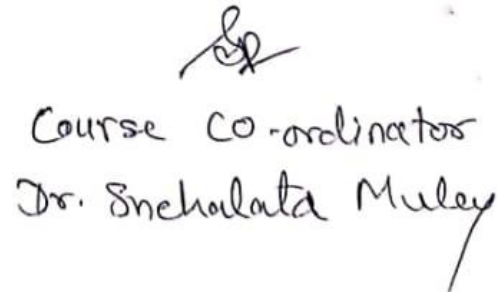 Course Co-ordinator
Dr. Snehalata Muley